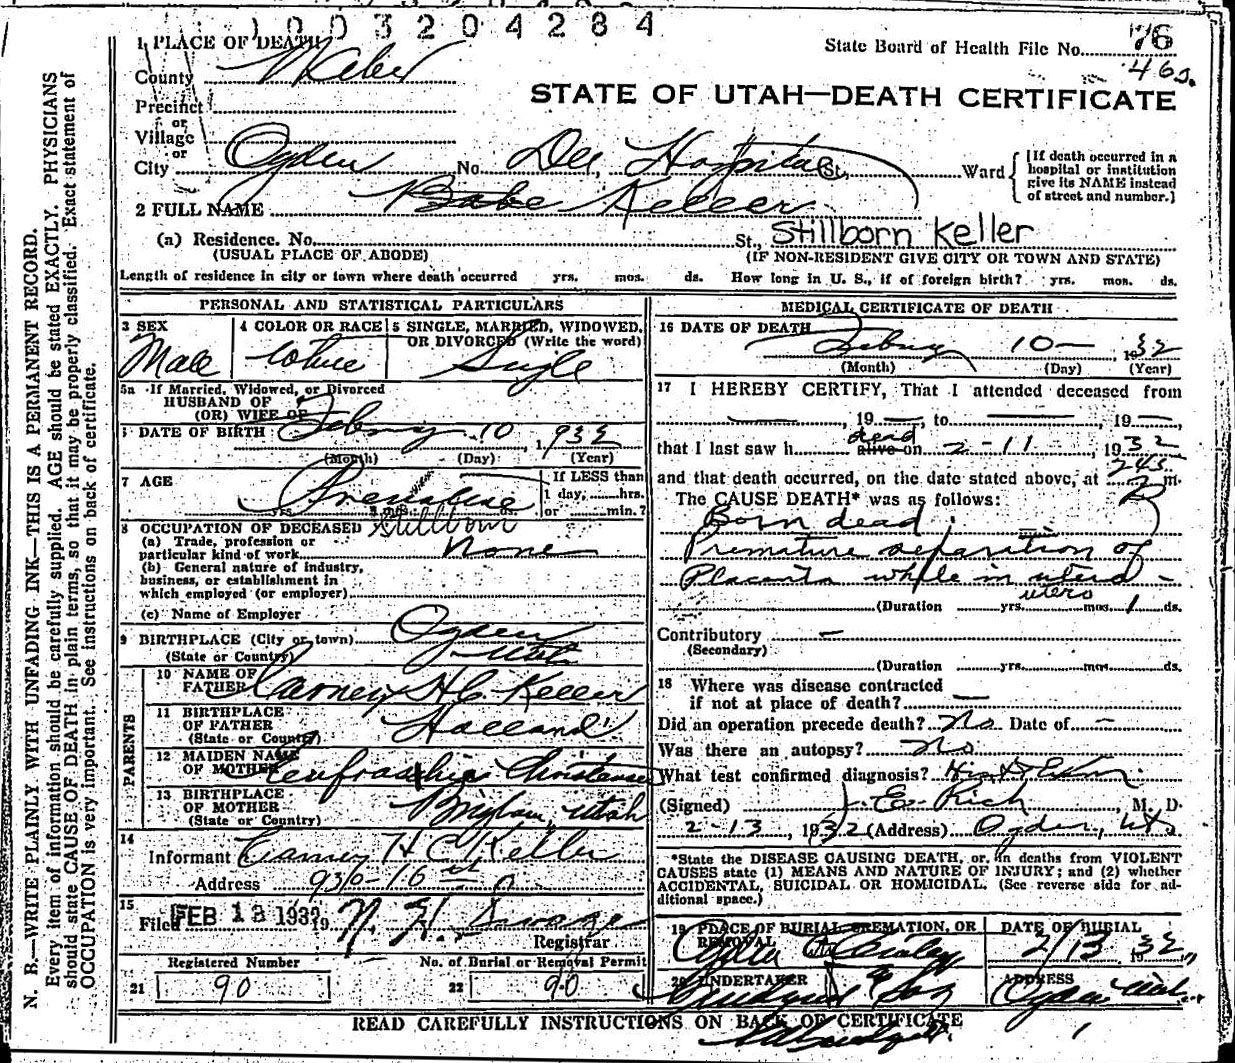 1003204284
1 PLACE OF DEATH
State Board of Health File No. 76
County Weber
46
STATE OF UTAH—DEATH CERTIFICATE
Precinct
or
Village
or
City Ogden No. Dee Hospital St., Ward
[If death occurred in a hospital or institution give its NAME instead of street and number.]
2 FULL NAME Babe Keller
(a) Residence. No. St., Stillborn Keller
(USUAL PLACE OF ABODE) (IF NON-RESIDENT GIVE CITY OR TOWN AND STATE)
Length of residence in city or town where death occurred yrs. mos. ds. How long in U. S., if of foreign birth? yrs. mos. ds.
PERSONAL AND STATISTICAL PARTICULARS
3 SEX Male
4 COLOR OR RACE White
5 SINGLE, MARRIED, WIDOWED, OR DIVORCED (Write the word) Single
5a If Married, Widowed, or Divorced
HUSBAND OF
(OR) WIFE OF
6 DATE OF BIRTH Febury 10, 1932
(Month) (Day) (Year)
7 AGE Premature
If LESS than
1 day, hrs.
or min.?
stillborn
8 OCCUPATION OF DECEASED
(a) Trade, profession or
particular kind of work None
(b) General nature of industry,
business, or establishment in
which employed (or employer)
(c) Name of Employer
9 BIRTHPLACE (City or town) Ogden
(State or Country) Utah
PARENTS
10 NAME OF FATHER Carney H C Keller
11 BIRTHPLACE OF FATHER (State or Country) Holland
12 MAIDEN NAME OF MOTHER
13 BIRTHPLACE OF MOTHER (State or Country) Brigham, Utah
14
Informant Carney H C Keller
Address 930-16
15
Filed FEB 13 1932 19
Registrar
Registered Number No. of Burial or Removal Permit
21 90 22 90
MEDICAL CERTIFICATE OF DEATH
16 DATE OF DEATH Febury 10—, 1932
(Month) (Day) (Year)
17 I HEREBY CERTIFY, That I attended deceased from
—, 19—, to —, 19—,
that I last saw h dead alive on 2-11, 1932
and that death occurred, on the date stated above, at m.
The CAUSE DEATH* was as follows:
Born dead.
Premature separation of
Placenta while in utero -
utero
(Duration yrs. mos. 1 ds.
Contributory —
(Secondary)
(Duration yrs. mos. ds.
18 Where was disease contracted
if not at place of death? —
Did an operation precede death? No Date of —
Was there an autopsy? No
What test confirmed diagnosis?
(Signed) J. E. Rich, M. D.
2-13, 1932 (Address) Ogden, Ut
*State the DISEASE CAUSING DEATH, or, in deaths from VIOLENT
CAUSES state (1) MEANS AND NATURE OF INJURY; and (2) whether
ACCIDENTAL, SUICIDAL OR HOMICIDAL. (See reverse side for ad-
ditional space.)
19 PLACE OF BURIAL, CREMATION, OR REMOVAL Ogden City
DATE OF BURIAL 2/13 1932
20 UNDERTAKER
ADDRESS Ogden Utah
READ CAREFULLY INSTRUCTIONS ON BACK OF CERTIFICATE
N. B.—WRITE PLAINLY WITH UNFADING INK—THIS IS A PERMANENT RECORD.
Every item of information should be carefully supplied. AGE should be stated EXACTLY. PHYSICIANS
should state CAUSE OF DEATH in plain terms, so that it may be properly classified. Exact statement of
OCCUPATION is very important. See instructions on back of certificate.